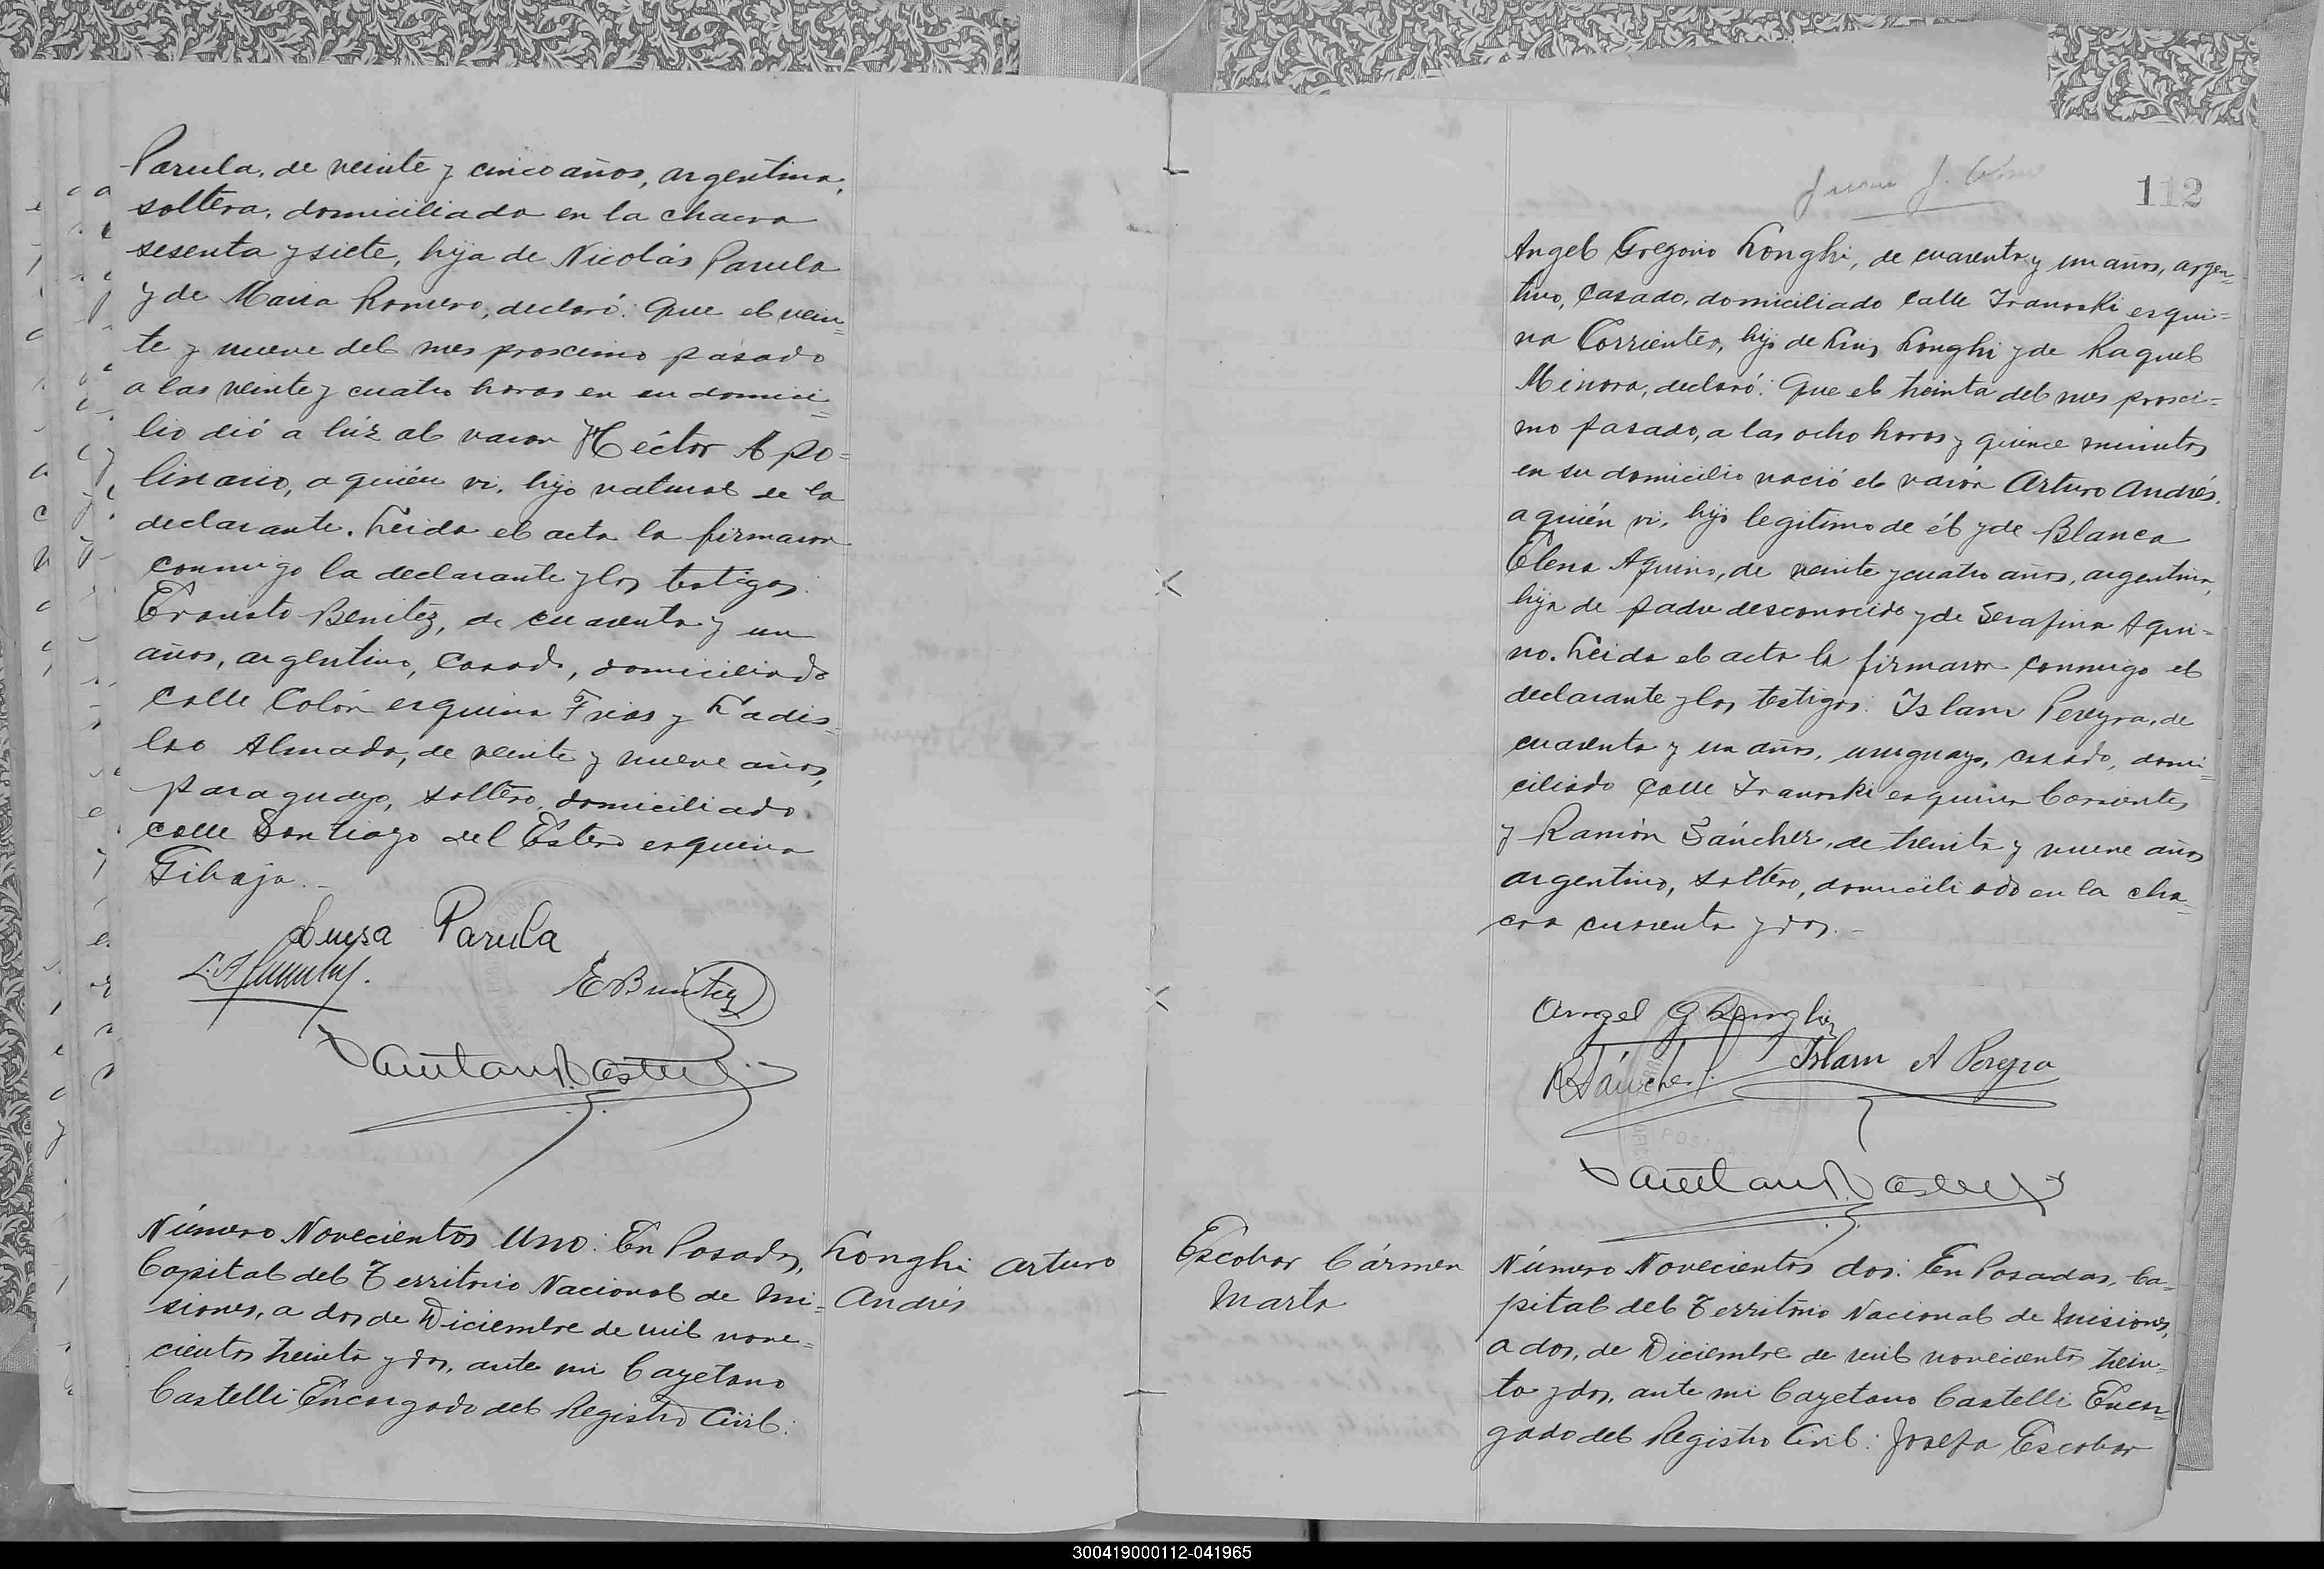 Parula, de veinte y cinco años, argentina,
soltera, domiciliada en la chacra
sesenta y siete, hija de Nicolás Parula
y de Maria Romero, declaró: Que el vein=
te y nueve del mes proscimo pasado
a las veinte y cuatro horas en su domici=
lio dió a lúz al varon Héctor Apo=
linario, a quién vi, hijo natural de la
declarante. Leida el acta la firmaron
conmigo la declarante y los testigos:
Evaristo Benitez, de cuarenta y un
años, argentino, casado, domiciliado
calle Colón esquina Frias y Ladis=
lao Almada, de veinte y nueve años,
paraguayo, soltero, domiciliado
calle Santiago del Estero esquina
Tibaja.
Luisa Parula
E Benitez
Número Novecientos Uno: En Posadas,
Capital del Territorio Nacional de Mi=
siones, a dos de Diciembre de mil nove=
cientos treinta y dos, ante mi Cayetano
Castelli Encargado del Registro Civil:
Longhi Arturo
Andrés
Juan J.
112
Angel Gregorio Longhi, de cuarenta y un años, argen=
tino, casado, domiciliado calle Ivanoski esqui=
na Corrientes, hijo de Luis Longhi y de Raquel
Minora, declaró: Que el treinta del mes prosci=
mo pasado, a las ocho horas y quince minutos
en su domicilio nació el varón Arturo Andrés,
a quién vi, hijo legitimo de él y de Blanca
Elena Aquino, de veinte y cuatro años, argentina,
hija de padre desconocido y de Serafina Aqui=
no. Leida el acta la firmaron conmigo el
declarante y los testigos: Islam Pereyra, de
cuarenta y un años, uruguayo, casado, domi=
ciliado calle Ivanoski esquina Corrientes
y Ramón Sánchez, de treinta y nueve años
argentino, soltero, domiciliado en la cha=
cra cuarenta y dos.
Angel G Longhi
R Sánchez
Islam A Pereyra
Escobar Cármen
Marta
Número Novecientos dos: En Posadas, Ca=
pital del Territorio Nacional de Misiones,
a dos, de Diciembre de mil novecientos trein=
ta y dos, ante mi Cayetano Castelli Encar=
gado del Registro Civil: Josefa Escobar
300419000112-041965